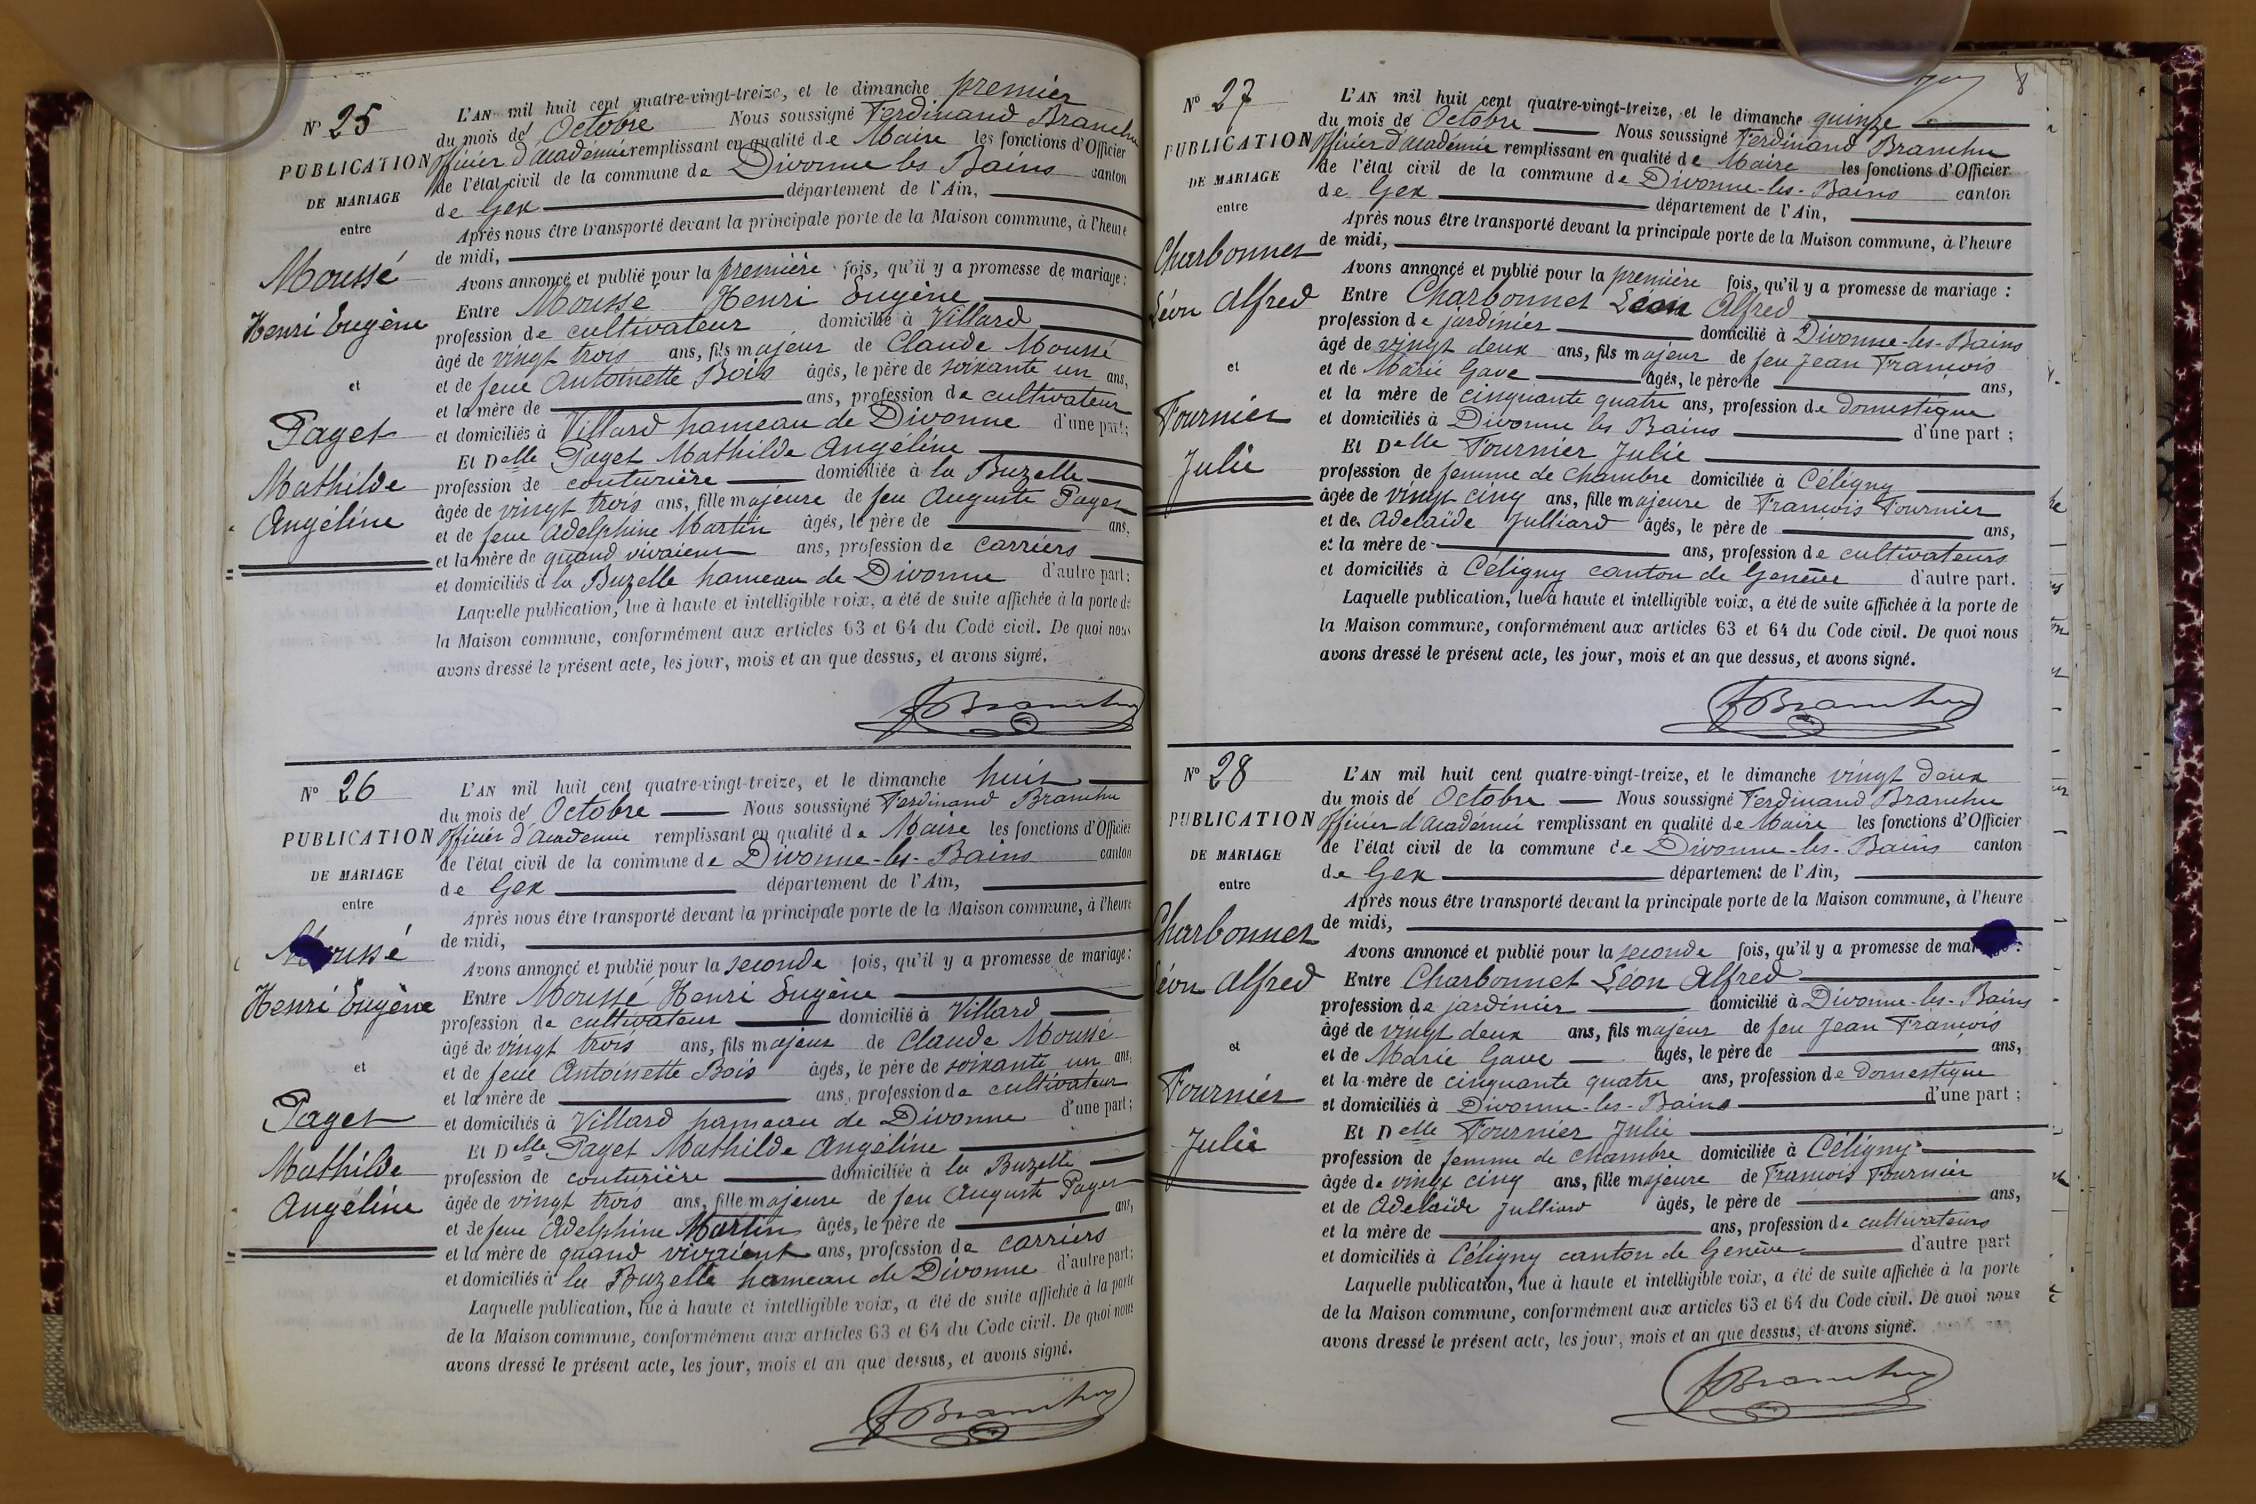 N° 25
PUBLICATION
DE MARIAGE
entre
Moussé
Henri Eugène
et
Paget
Mathilde
Angéline
L'AN mil huit cent quatre-vingt-treize, et le dimanche premier
du mois de Octobre Nous soussigné Ferdinand Branchu
Officier d'Académie remplissant en qualité de Maire les fonctions d'Officier
de l'état civil de la commune de Divonne les Bains canton
de Gex département de l'Ain,
Après nous être transporté devant la principale porte de la Maison commune, à l'heure
de midi,
Avons annoncé et publié pour la première fois, qu'il y a promesse de mariage :
Entre Moussé Henri Eugène
profession de cultivateur domicilié à Villard
âgé de vingt trois ans, fils majeur de Claude Moussé
et de feue Antoinette Bois âgés, le père de soixante un ans,
et la mère de ans, profession de cultivateur
et domiciliés à Villard hameau de Divonne d'une part ;
Et Delle Paget Mathilde Angéline
profession de couturière domiciliée à la Buzelle
âgée de vingt trois ans, fille majeure de feu Auguste Paget
et de feue Adelphine Martin âgés, le père de ans,
et la mère de quand vivaient ans, profession de carriers
et domiciliés à la Buzelle hameau de Divonne d'autre part ;
Laquelle publication, lue à haute et intelligible voix, a été de suite affichée à la porte de
la Maison commune, conformément aux articles 63 et 64 du Code civil. De quoi nous
avons dressé le présent acte, les jour, mois et an que dessus, et avons signé.
FBranchu
N° 26
PUBLICATION
DE MARIAGE
entre
Moussé
Henri Eugène
et
Paget
Mathilde
Angéline
L'AN mil huit cent quatre-vingt-treize, et le dimanche huit
du mois de Octobre Nous soussigné Ferdinand Branchu
Officier d'Academie remplissant en qualité de Maire les fonctions d'Officier
de l'état civil de la commune de Divonne-les-Bains canton
de Gex département de l'Ain,
Après nous être transporté devant la principale porte de la Maison commune, à l'heure
de midi,
Avons annoncé et publié pour la seconde fois, qu'il y a promesse de mariage :
Entre Moussé Henri Eugène
profession de cultivateur domicilié à Villard
âgé de vingt trois ans, fils majeur de Claude Moussé
et de feue Antoinette Bois âgés, le père de soixante un ans,
et la mère de ans, profession de cultivateur
et domiciliés à Villard hameau de Divonne d'une part ;
Et Delle Paget Mathilde Angéline
profession de couturière domiciliée à la Buzelle
âgée de vingt trois ans, fille majeure de feu Auguste Paget
et de feue Adelphine Martin âgés, le père de ans,
et la mère de quand vivaient ans, profession de carriers
et domiciliés à la Buzelle hameau de Divonne d'autre part ;
Laquelle publication, lue à haute et intelligible voix, a été de suite affichée à la porte
de la Maison commune, conformément aux articles 63 et 64 du Code civil. De quoi nous
avons dressé le présent acte, les jour, mois et an que dessus, et avons signé.
FBranchu
8
N° 27
PUBLICATION
DE MARIAGE
entre
Charbonnet
Léon Alfred
et
Fournier
Julie
L'AN mil huit cent quatre-vingt-treize, et le dimanche quinze
du mois de Octobre Nous soussigné Ferdinand Branchu
Officier d'Académie remplissant en qualité de Maire les fonctions d'Officier
de l'état civil de la commune de Divonne-les-Bains canton
de Gex département de l'Ain,
Après nous être transporté devant la principale porte de la Maison commune, à l'heure
de midi,
Avons annoncé et publié pour la première fois, qu'il y a promesse de mariage :
Entre Charbonnet Léon Alfred
profession de jardinier domicilié à Divonne-les-Bains
âgé de vingt deux ans, fils majeur de feu Jean François
et de Marie Gave âgés, le père de ans,
et la mère de cinquante quatre ans, profession de domestique
et domiciliés à Divonne les Bains d'une part ;
Et Delle Fournier Julie
profession de femme de chambre domiciliée à Céligny
âgée de vingt cinq ans, fille majeure de François Fournier
et de Adelaïde Julliard âgés, le père de ans,
et la mère de ans, profession de cultivateurs
et domiciliés à Céligny canton de Genève d'autre part.
Laquelle publication, lue à haute et intelligible voix, a été de suite affichée à la porte de
la Maison commune, conformément aux articles 63 et 64 du Code civil. De quoi nous
avons dressé le présent acte, les jour, mois et an que dessus, et avons signé.
FBranchu
N° 28
PUBLICATION
DE MARIAGE
entre
Charbonnet
Léon Alfred
et
Fournier
Julie
L'AN mil huit cent quatre-vingt-treize, et le dimanche vingt deux
du mois de Octobre Nous soussigné Ferdinand Branchu
Officier d'Académie remplissant en qualité de Maire les fonctions d'Officier
de l'état civil de la commune de Divonne-les-Bains canton
de Gex département de l'Ain,
Après nous être transporté devant la principale porte de la Maison commune, à l'heure
de midi,
Avons annoncé et publié pour la seconde fois, qu'il y a promesse de mariage :
Entre Charbonnet Léon Alfred
profession de jardinier domicilié à Divonne-les-Bains
âgé de vingt deux ans, fils majeur de feu Jean François
et de Marie Gave âgés, le père de ans,
et la mère de cinquante quatre ans, profession de domestique
et domiciliés à Divonne-les-Bains d'une part ;
Et Delle Fournier Julie
profession de femme de chambre domiciliée à Céligny
âgée de vingt cinq ans, fille majeure de François Fournier
et de Adelaïde Julliard âgés, le père de ans,
et la mère de ans, profession de cultivateurs
et domiciliés à Céligny canton de Genève d'autre part
Laquelle publication, lue à haute et intelligible voix, a été de suite affichée à la porte
de la Maison commune, conformément aux articles 63 et 64 du Code civil. De quoi nous
avons dressé le présent acte, les jour, mois et an que dessus, et avons signé.
FBranchu